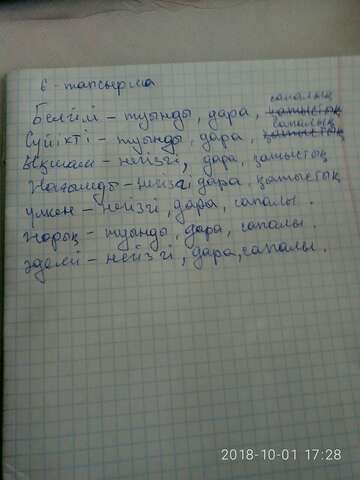 6-тапсырма
Белгілі - туынды, дара, сапалық қатыстық
Сүйікті - туынды, дара, сапалық қатыстық
Ықшам - негізгі, дара, қатыстық
- негізгі дара, қатыстық
үлкен - негізгі, дара, сапалы.
жарық - туынды, дара, сапалы.
әдемі - негізгі, дара, сапалы.
2018-10-01 17:28